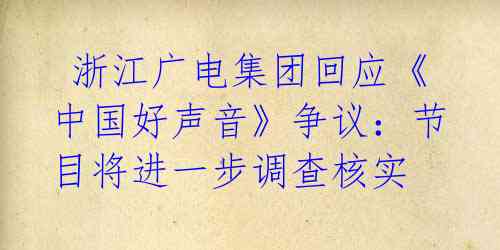 浙江广电集团回应《
中国好声音》争议：节
目将进一步调查核实